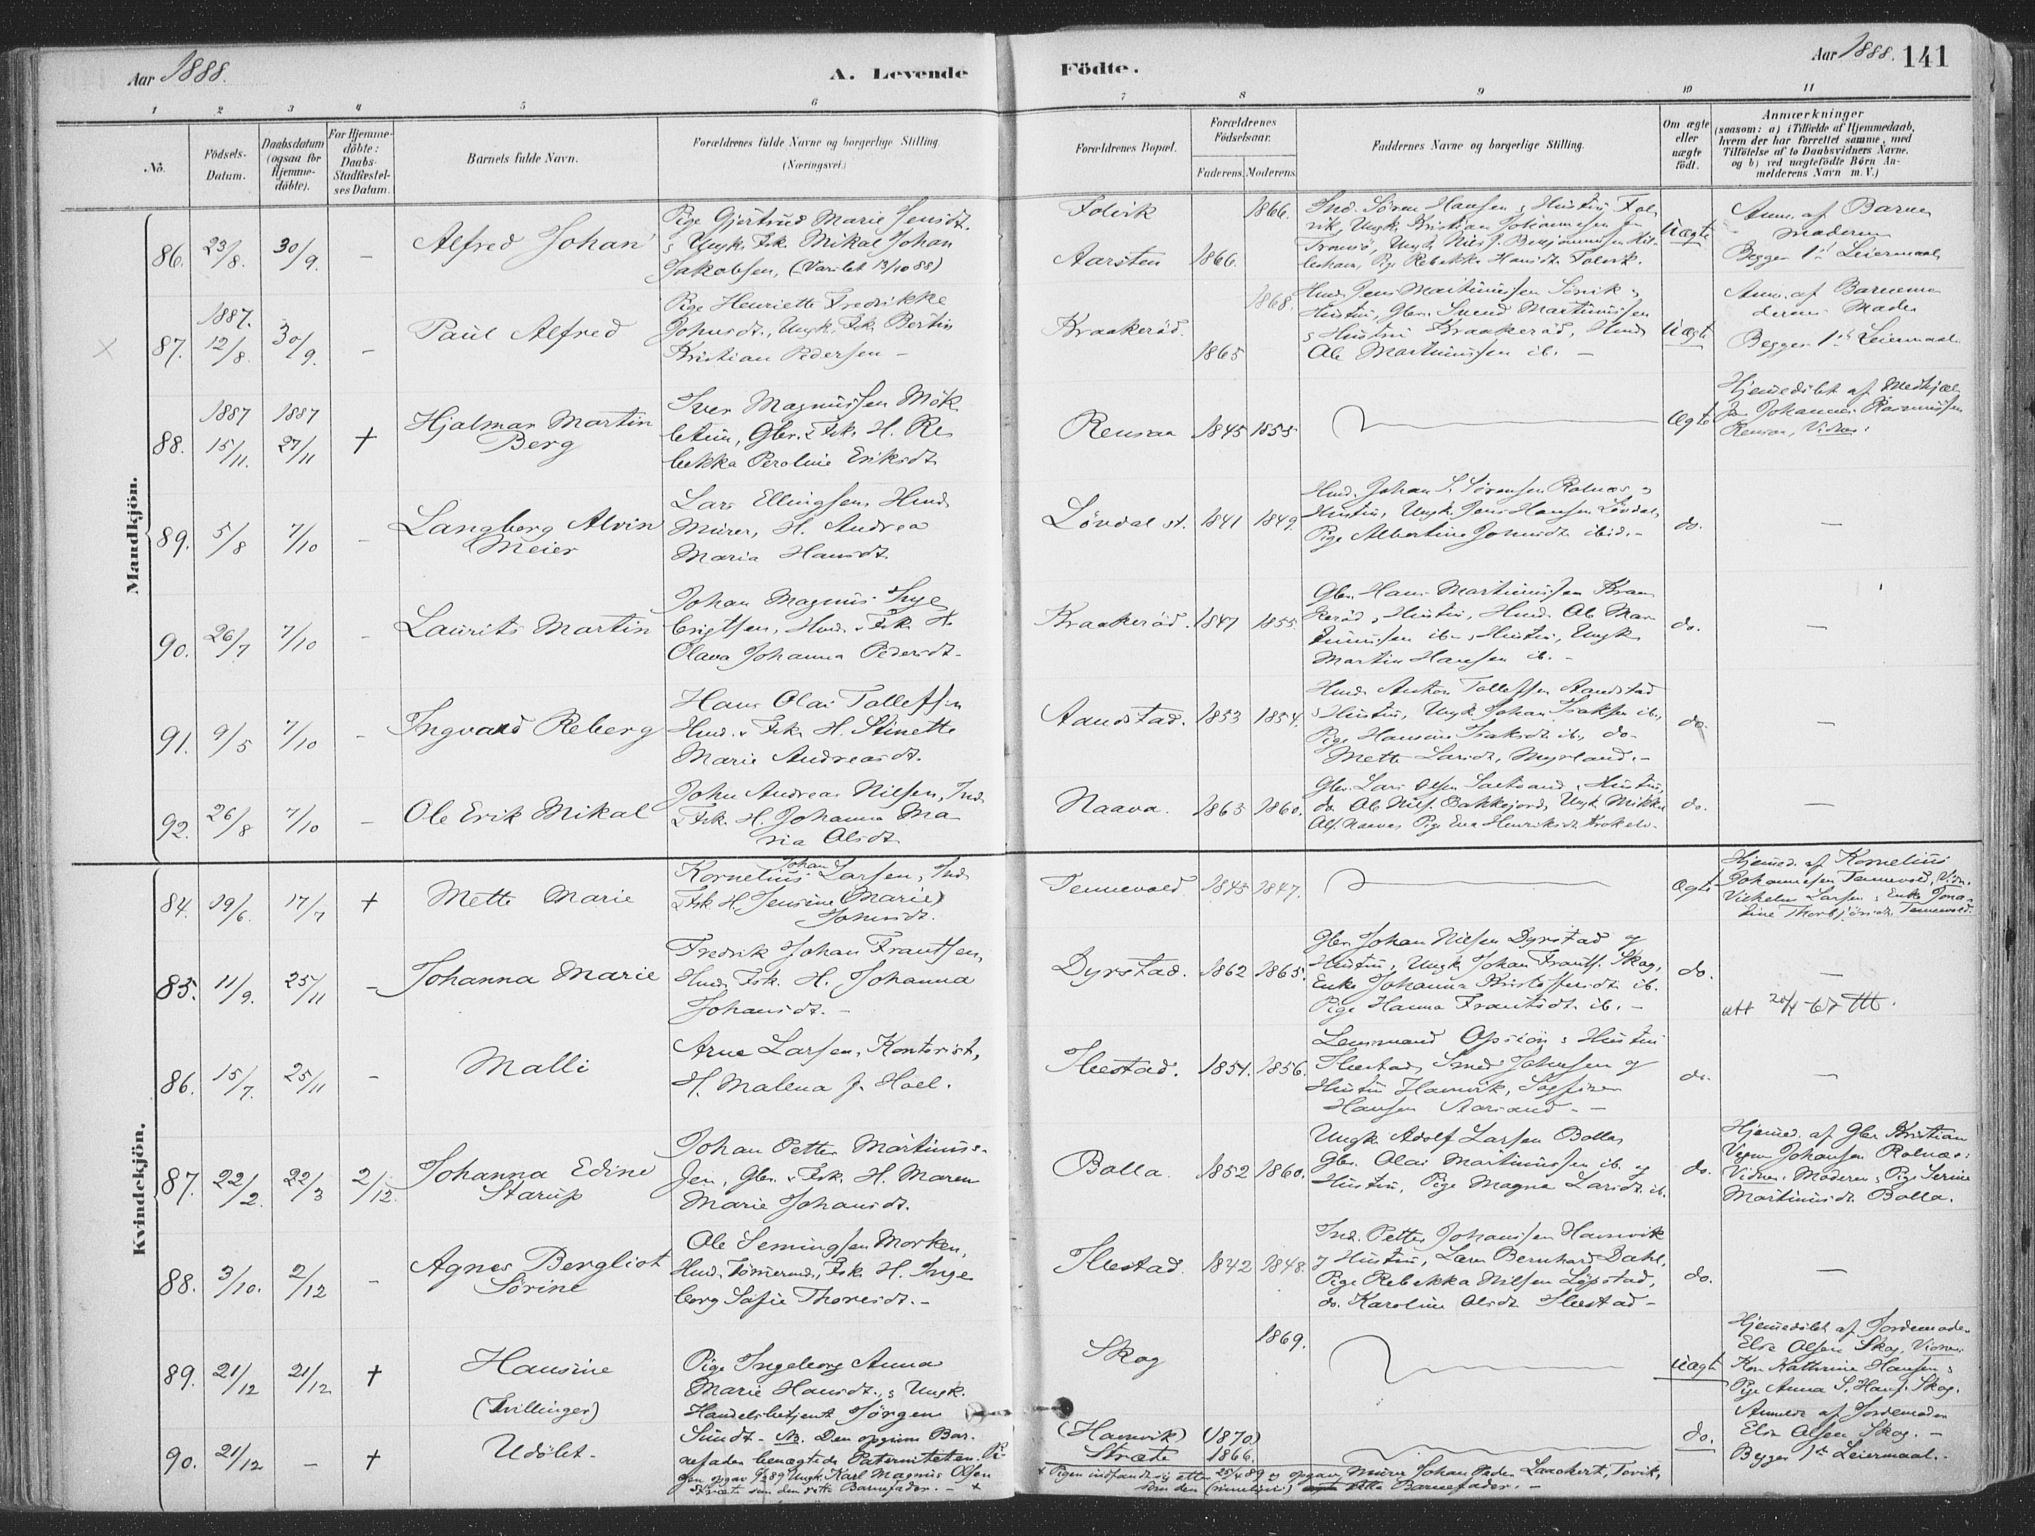 Aar 1888.
A. Levende
Födte.
Aar 1888. 141
1 2 3 4 5 6 7 8 9 10 11
No.
Födsels-
Datum.
Daabsdatum
(ogsaa for
Hjemme-
döbte).
For Hjemme-
döbte:
Daabs-
Stadfæstel-
ses Datum.
Barnets fulde Navn.
Forældrenes fulde Navne og borgerlige Stilling
(Næringsvei.)
Forældrenes Bopæl.
Forældrenes
Födselsaar.
Faderens. Moderens.
Faddernes Navne og borgerlige Stilling.
Om ægte
eller
uægte
födt.
Anmærkninger
(saasom: a) i Tilfælde af Hjemmedaab,
hvem der har forrettet samme, med
Tilföielse af to Daabsvidners Navne,
og b) ved uægtefödte Börn An-
melderens Navn m. V.)
Mandkjön.
86. 23/8. 30/9. - Alfred Johan
Pige Gjertrud Marie Jensdt.
s Ungk. Fsk. Mikal Johan
Jakobsen, (Var ilet 13/10 88)
Folvik
Aarsten
1866. 1866.
Ind. Sören Hansen s Hustru Fol-
vik, Ungk. Kristian Johannesen
Uægte
Anm. af Barne
moderen
Begges 1ste Leiermaal
87. 1887. 12/8. 30/9. - Paul Alfred
Pige Henriette Fredrikke
Johnsdt., Ungk. Fsk. Bertin
Kristian Pedersen -
Kraakeröd.
1865 1868.
Hmd. Jens Martinussen
Hustru, Gbr. Svend Martinussen
s Hustru Kraakeröd, Hmd.
Ole Martinussen ib. -
Uægte
Anm. af Barnemo-
deren
Begges 1ste Leiermaal
88. 1887 15/11. 1887 27/11 + Hjalmar Martin
Berg
Iver Magnussen Mök-
letun, Gbr. & Fsk. H. Re-
bekka Peroline Eriksdt.
Rensaa 1845 1855.
Ægte
Hjemmedöbt af
Johannes Rasmussen
Rensaa, Vidner:
89. 5/8 7/10 - Langberg Alvin
Meier
Lars Ellingsen, Hmd.
Murer, H. Andrea
Maria Hansdt.
Lövdal 1841 1849.
Hmd. Johan S. Sörensen Rolnæs s
Hustru, Ungk. Jens Hansen Lövdal,
Pige Albertine Johnsdt. ibid. -
do. -
90. 26/7 7/10 - Laurits Martin
Johan Magnus Inge-
brigtsen, Hmd. & Fsk. H.
Olava Johanna Pedersdt.
Kraakeröd. 1847 1855.
Gbr. Hans Martinussen Kraa-
keröd s Hustru, Hmd. Ole Mar-
tinussen ib. s Hustru, Ungk.
Martin Hansen ib. -
do. -
91. 9/5 7/10 - Ingvald Reberg
Hans Olai Tollefsen
Hmd. & Fsk. H. Stinette
Marie Andreasdt.
Aandstad. 1853 1854.
Hmd. Anton Tollefsen Aandstad
s Hustru, Ungk. Johan Isaksen ib.,
Pige Hansine Isaksdt. ib., do.
Mette Larsdt. Myrland. -
do. -
92. 26/8 7/10 - Ole Erik Mikal
John Andreas Nilsen, Ind.
& Fsk. H. Johanna Ma-
ria Olsdt.
Naava. 1863 1860.
Gbr. Lars Olsen s Hustru,
do. Ole Nils. Bakkejord, Ungk. Mikkel
do. -
Kvindekjön.
84. 19/6. 17/7 + Mette Marie
Kornelius Johan Larsen, Ind.
& Fsk. H. Jensine (Marie)
Johnsdt.
Tennevold 1845 1847.
Ægte
Hjemd. af Kornelius
Johannesen Tennevold, Vidn.
Vilhelm Larsen s Enke Jona-
Tennevold.
85. 11/9. 25/11 - Johanna Marie
Fredrik Johan Frantsen,
Hmd. Fsk. H. Johanna
Johansdt. -
Dyrstad. 1862 1865.
Gbr. Johan Nilsen Dyrstad og
Hustru, Ungk. Johan Frants. Skog,
Enke Johanna Kristoffersdt. ib.
Pige Hanna Frantsdt. ib. -
do. -
86. 15/7. 25/11 - Malli
Arne Larsen, Kontorist,
H. Malena J. Hoel.
Ibestad. 1854. 1856.
Lensmand s Hustru
Ibestad, Smed Johnsen og
Hustru Hamnvik,
Hansen - -
do. -
87. 22/2. 22/3 2/12. Johanna Edine
Starup
Johan Petter Martinus-
sen, Gbr. & Fsk. H. Maren
Marie Johansdt.
Bolla. 1852 1860.
Ungk. Adolf Larsen Bolla,
Gbr. Olai Martinussen ib. og
Hustru, Pige Magna Larsdt. ib.
do.
Hjemd. af Gbr. Kristian
Johansen Rolnæs:
Vidner. Moderen s Pige Serine
Martinusdt. Bolla.
88. 3/10. 2/12 - Agnes Bergliot
Sörine
Ole Semingsen Morken,
Hmd. Tömmermd., Fsk. H. Inge-
borg Sofie Thoresdt. -
Ibestad. 1842 1848.
Ind. Petter Johansen Hamnvik
og Hustru, Bernhard Dahl,
Pige Rebekka Nilsen Löpstad,
do. Karoline Olsdt. Ibestad -
do. -
89. 21/12 21/12 + Hansine
(Tvillinger)
Pige Ingeborg Anna
Marie Hansdt., s Ungk.
Handelsbetjent Jörgen
Skog 1869.
uægt
Hjemmedöbt af Jordemoder
Else Olsen Skog, Vidner
Kone Kathrine Hansen s
Pige Anna S. Hans. Skog.
90. 21/12 - + Udöbt -
Sundt - NB. Den opgivne Bar-
nefader benægtede Paterniteten. Pi-
gen opgav 89 Ungk. Karl Magnus Olsen
Stræte som den rette Barnefader. - +
(Hamnvik) (1870.)
Stræte 1866.
+ Pigen indfandt sig atter 25/4 89 og opgav Murer Johan Peder
som den (rimelige) Barnefader. -
do.
Anmeldt af Jordemoder
Else Olsen Skog. -
Begges 1ste Leiermaal. -